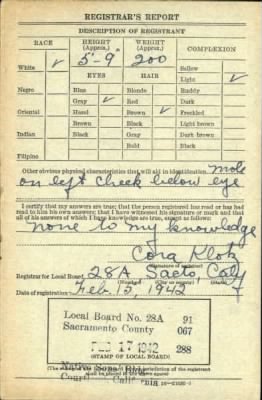 REGISTRAR'S REPORT
DESCRIPTION OF REGISTRANT
RACE HEIGHT (Approx.) WEIGHT (Approx.) COMPLEXION
White ✓ 5'-9" 200 Sallow
EYES HAIR Light ✓
Negro Blue Blonde Ruddy
Gray ✓ Red Dark
Oriental Hazel Brown ✓ Freckled
Brown Black Light brown
Indian Black Gray Dark brown
Bald Black
Filipino
Other obvious physical characteristics that will aid in identification mole
on left cheek below eye
I certify that my answers are true; that the person registered has read or has had
read to him his own answers; that I have witnessed his signature or mark and that
all of his answers of which I have knowledge are true, except as follows:
none to my knowledge
Cora Klotz
(Signature of registrar)
Registrar for Local Board 28A Sacto, Calif
(Number) (City or county) (State)
Date of registration Feb. 15, 1942
Local Board No. 28A 91
Sacramento County 067
FEB 17 1942 288
(STAMP OF LOCAL BOARD)
Native Sons